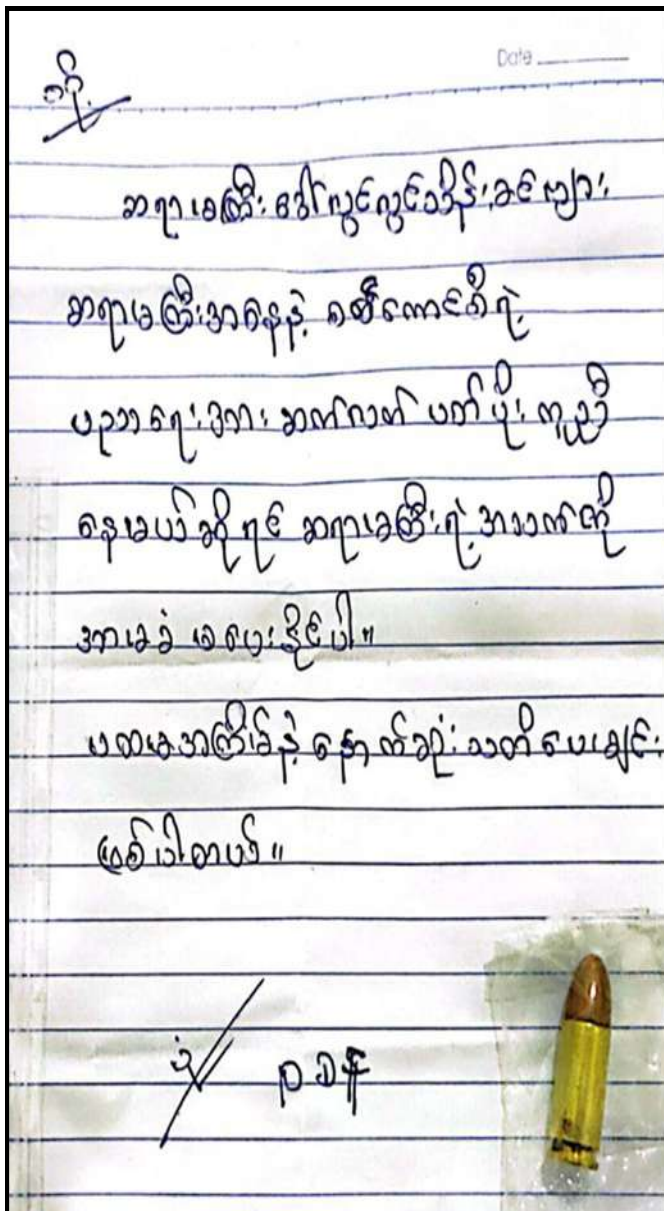 Date
သို့
ဆရာမကြီး ဒေါ်လွင်လွင်သိန်း ခင်ဗျား
ဆရာမကြီးအနေနဲ့ စစ်ကောင်စီရဲ့
ပညာရေးအား ဆက်လက် ပတ်ပိုး ကူညီ
နေမယ်ဆိုရင် ဆရာမကြီးရဲ့ အသက်ကို
အာမခံ မပေးနိုင်ပါ။
ပထမအကြိမ်နဲ့ နောက်ဆုံး သတိပေးချင်း
ဖြစ်ပါတယ်။
ပုံ